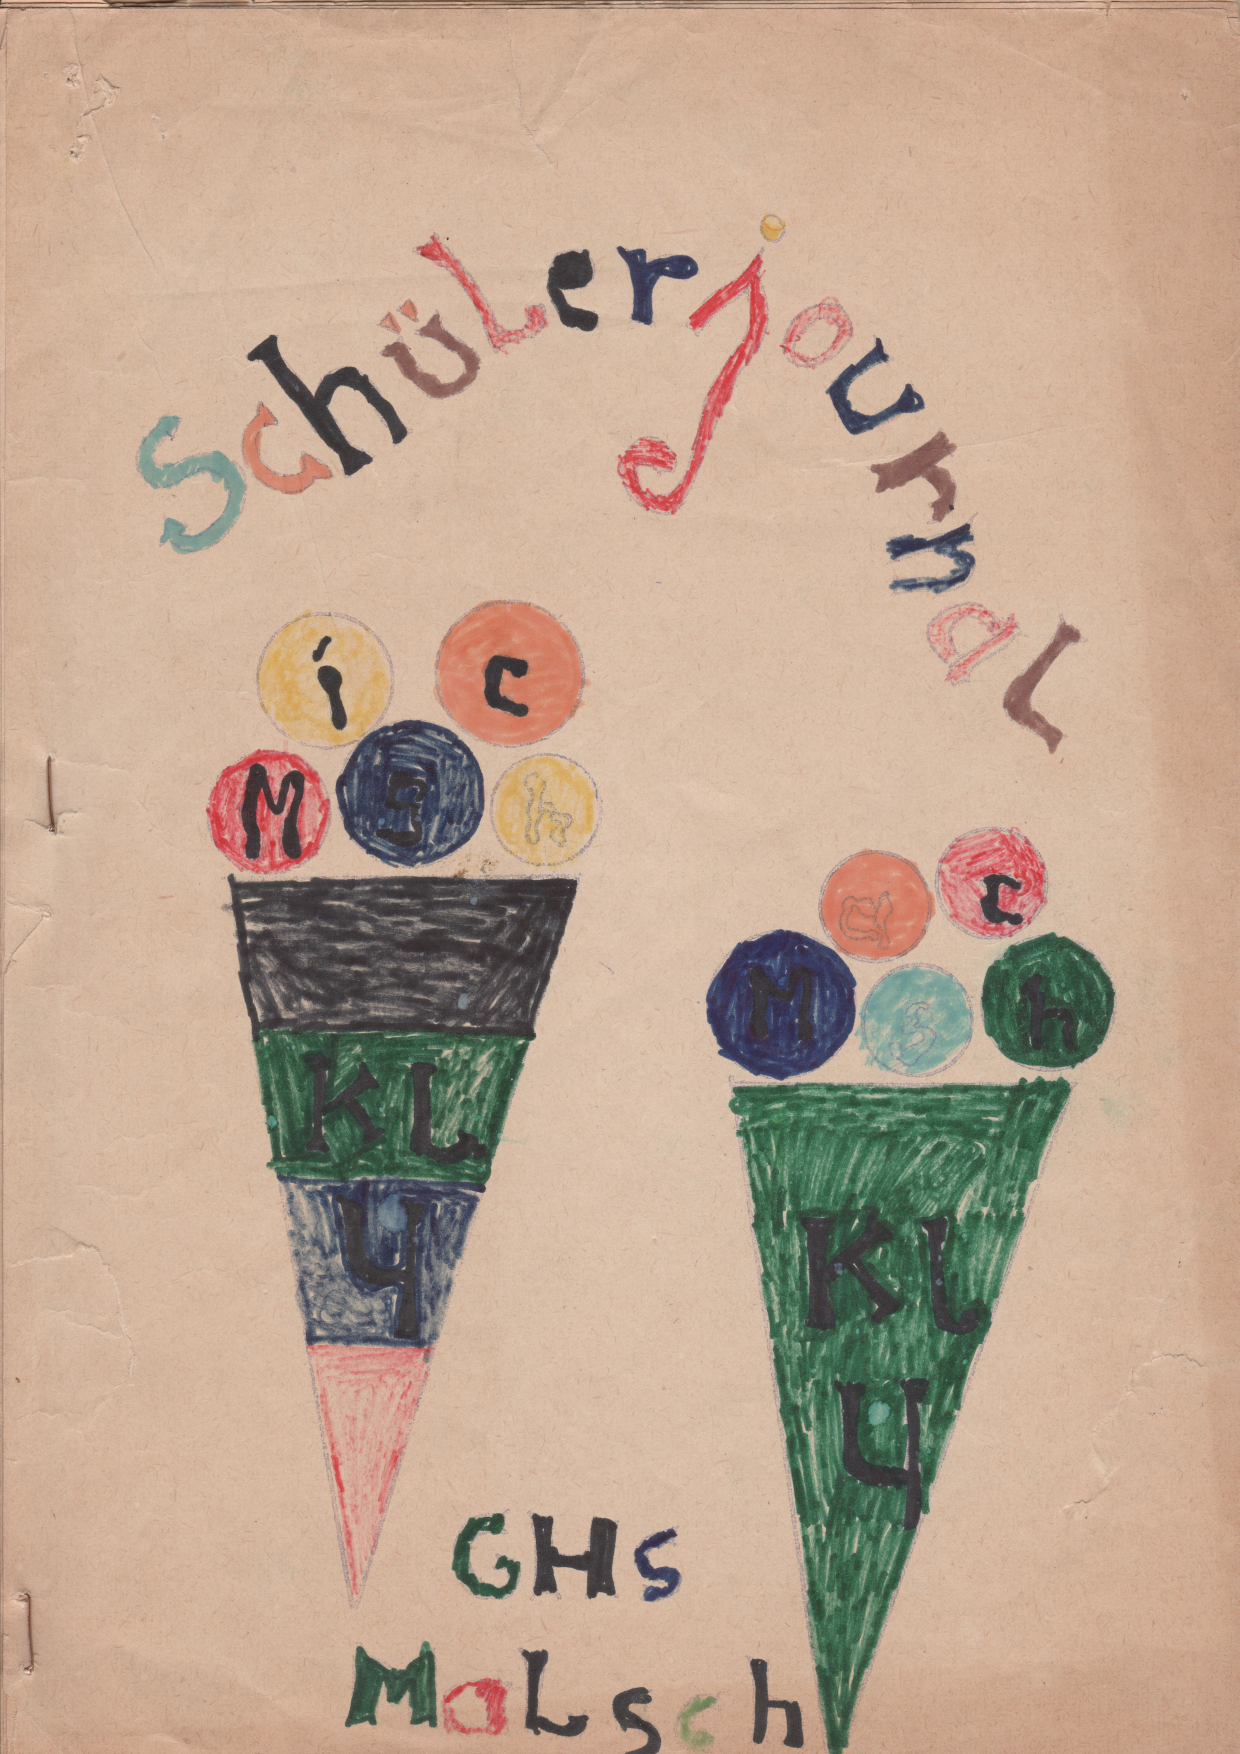 Schülerjournal
Misch
KL
4
Masch
Kl
4
GHS
Malsch